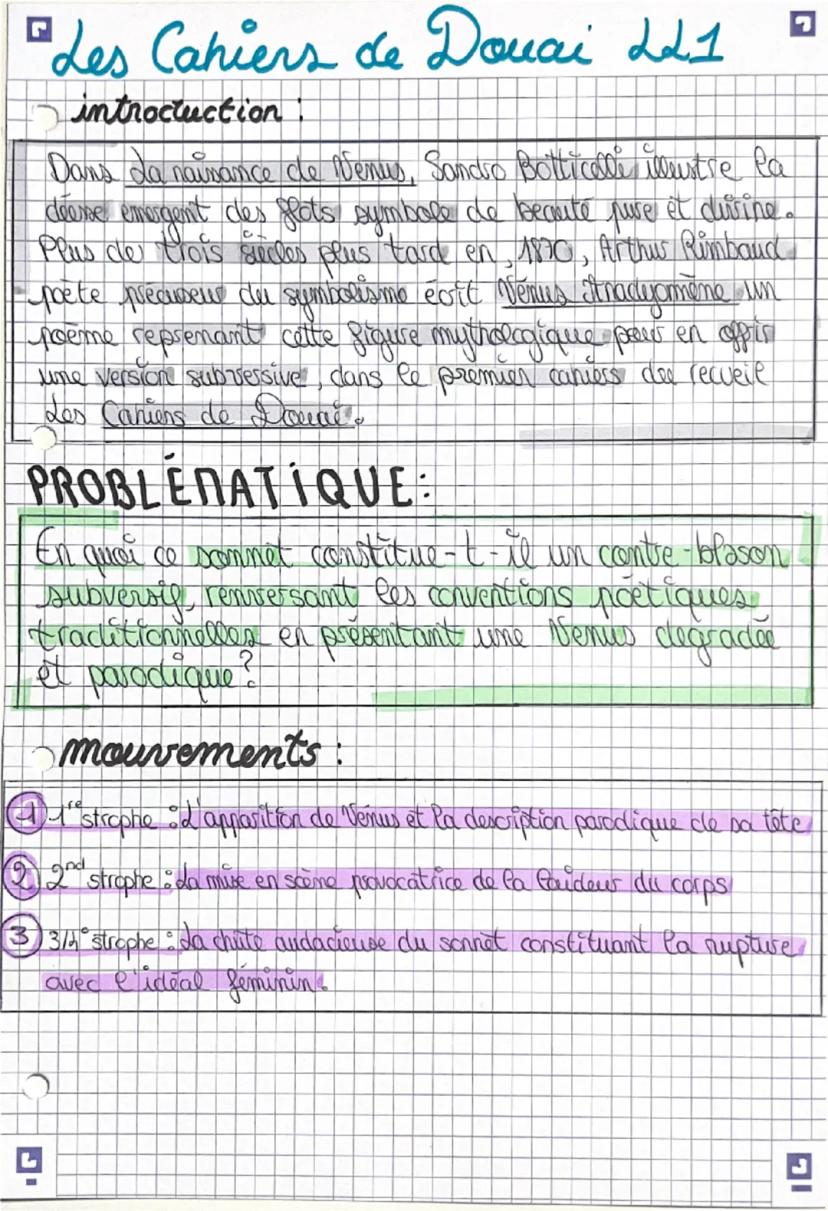 Les Cahiers de Douai LL1
introduction :
Dans La naissance de Vénus, Sandro Botticelli illustre la
déesse émergent des flots symbole de beauté pure et divine.
Plus de trois siècles plus tard en, 1870, Arthur Rimbaud
poète précurseur du symbolisme écrit Vénus Anadyomène un
poème reprenant cette figure mythologique pour en offrir
une version subversive, dans le premier cahiers du recueil
Les Cahiers de Douai.
PROBLÉMATIQUE :
En quoi ce sonnet constitue-t-il un contre-blason
subversif, renversant les conventions poétiques
traditionnelles en présentant une Venus degradée
et parodique ?
mouvements :
1 1re strophe : L'apparition de Vénus et la description parodique de sa tête
2 2nd strophe : La mise en scène provocatrice de la laideur du corps
3 3/4e strophe : La chute audacieuse du sonnet constituant la rupture
avec l'idéal féminin.